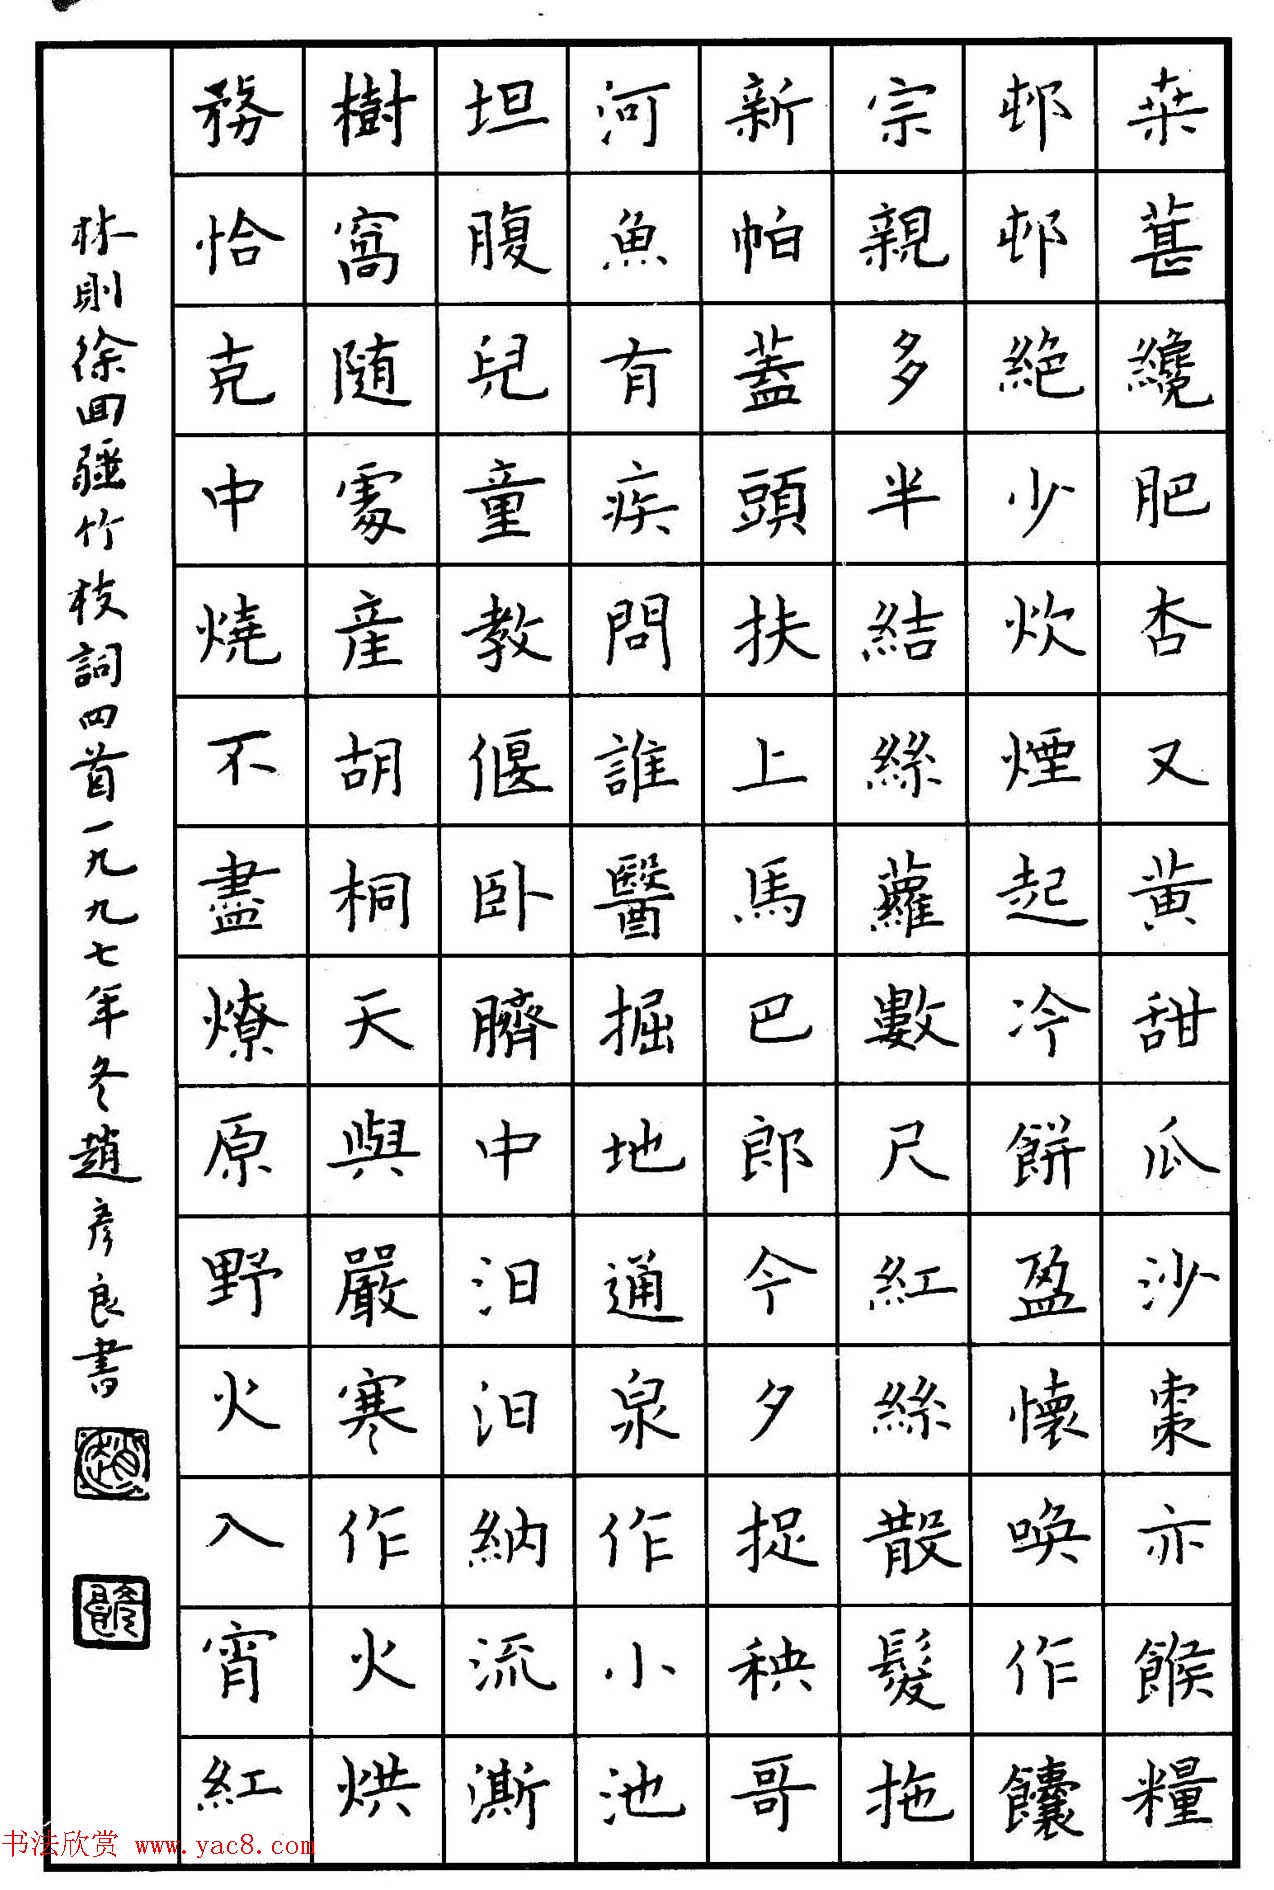 桒葚纔肥杏又黄甜瓜沙棗亦餱糧
邨邨絶少炊煙起冷餅盈懷喚作饢
宗親多半結絲蘿數尺紅絲散髮拖
新帕蓋頭扶上馬巴郎今夕捉秧哥
河魚有疾問誰醫掘地通泉作小池
坦腹兒童教偃卧臍中汩汩納流澌
樹窩随處産胡桐天與嚴寒作火烘
務恰克中燒不盡燎原野火入宵紅
林則徐回疆竹枝詞四首一九九七年冬趙彦良書
书法欣赏 www.yac8.com